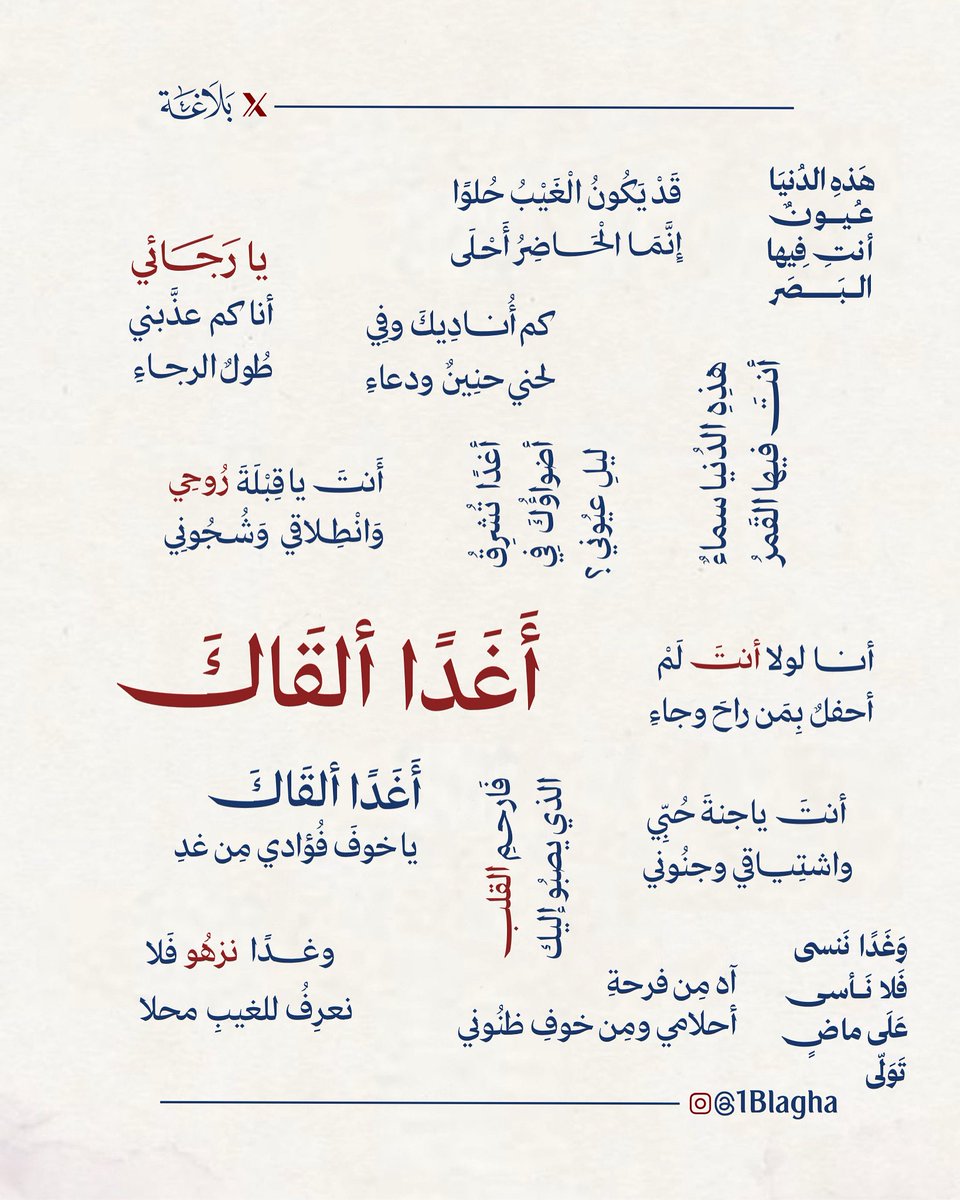 بَلَاغَة X
هَذهِ الدُنيَا
عُيـونٌ
أنتِ فِيها
البَصَر
قَدْ يَكُونُ الْغَيْبُ حُلوًا
إِنَّمَا الْحَاضِرُ أَحْلَى
يا رَجَائي
أنا كم عذَّبني
طُولُ الرجاءِ
كم أُناديكَ وفِي
لحني حنِينٌ ودعاءِ
هذِهِ الدُنيا سماءٌ
أنتَ فيها القَمرُ
أغدًا تُشرِقُ
أضواؤُكَ فِي
ليلِ عيُوني؟
أَنتَ يا قِبْلَةَ رُوحِي
وَانْطِلاقي وَشُجُونِي
أَغَدًا ألقَاكَ
أنا لولا أنتَ لَمْ
أحفلُ بِمَن راحَ وجاءِ
أَغَدًا ألقَاكَ
يا خوفَ فُؤادي مِن غدِ
فَارحمِ القلب
الذي يصبُو إليك
أنتَ ياجنةَ حُبِّي
واشتِياقي وجنُوني
وغدًا نزهُو فَلا
نعرِفُ للغيبِ محلا
آه مِن فرحةِ
أحلامي ومِن خوفِ ظنُوني
وَغَدًا نَنسى
فَلا نَأسى
عَلَى ماضٍ
تَوَلّى
@1Blagha